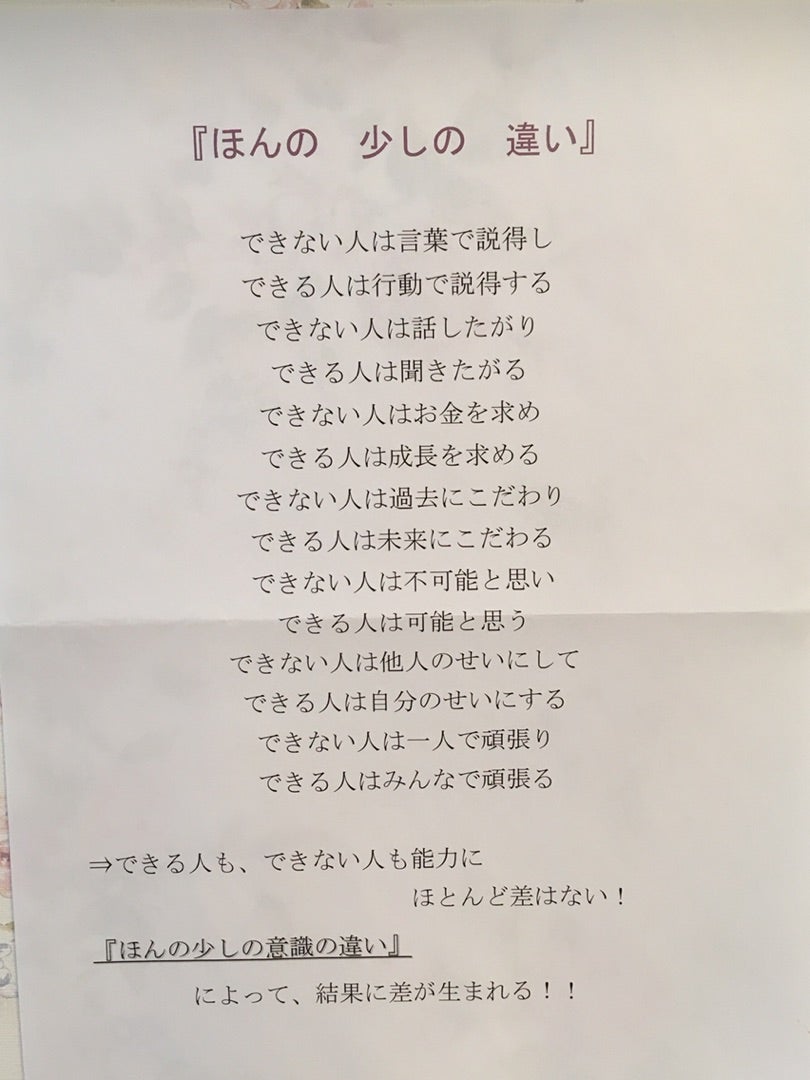 『ほんの　少しの　違い』
できない人は言葉で説得し
できる人は行動で説得する
できない人は話したがり
できる人は聞きたがる
できない人はお金を求め
できる人は成長を求める
できない人は過去にこだわり
できる人は未来にこだわる
できない人は不可能と思い
できる人は可能と思う
できない人は他人のせいにして
できる人は自分のせいにする
できない人は一人で頑張り
できる人はみんなで頑張る
⇒できる人も、できない人も能力に
ほとんど差はない！
『ほんの少しの意識の違い』
によって、結果に差が生まれる！！